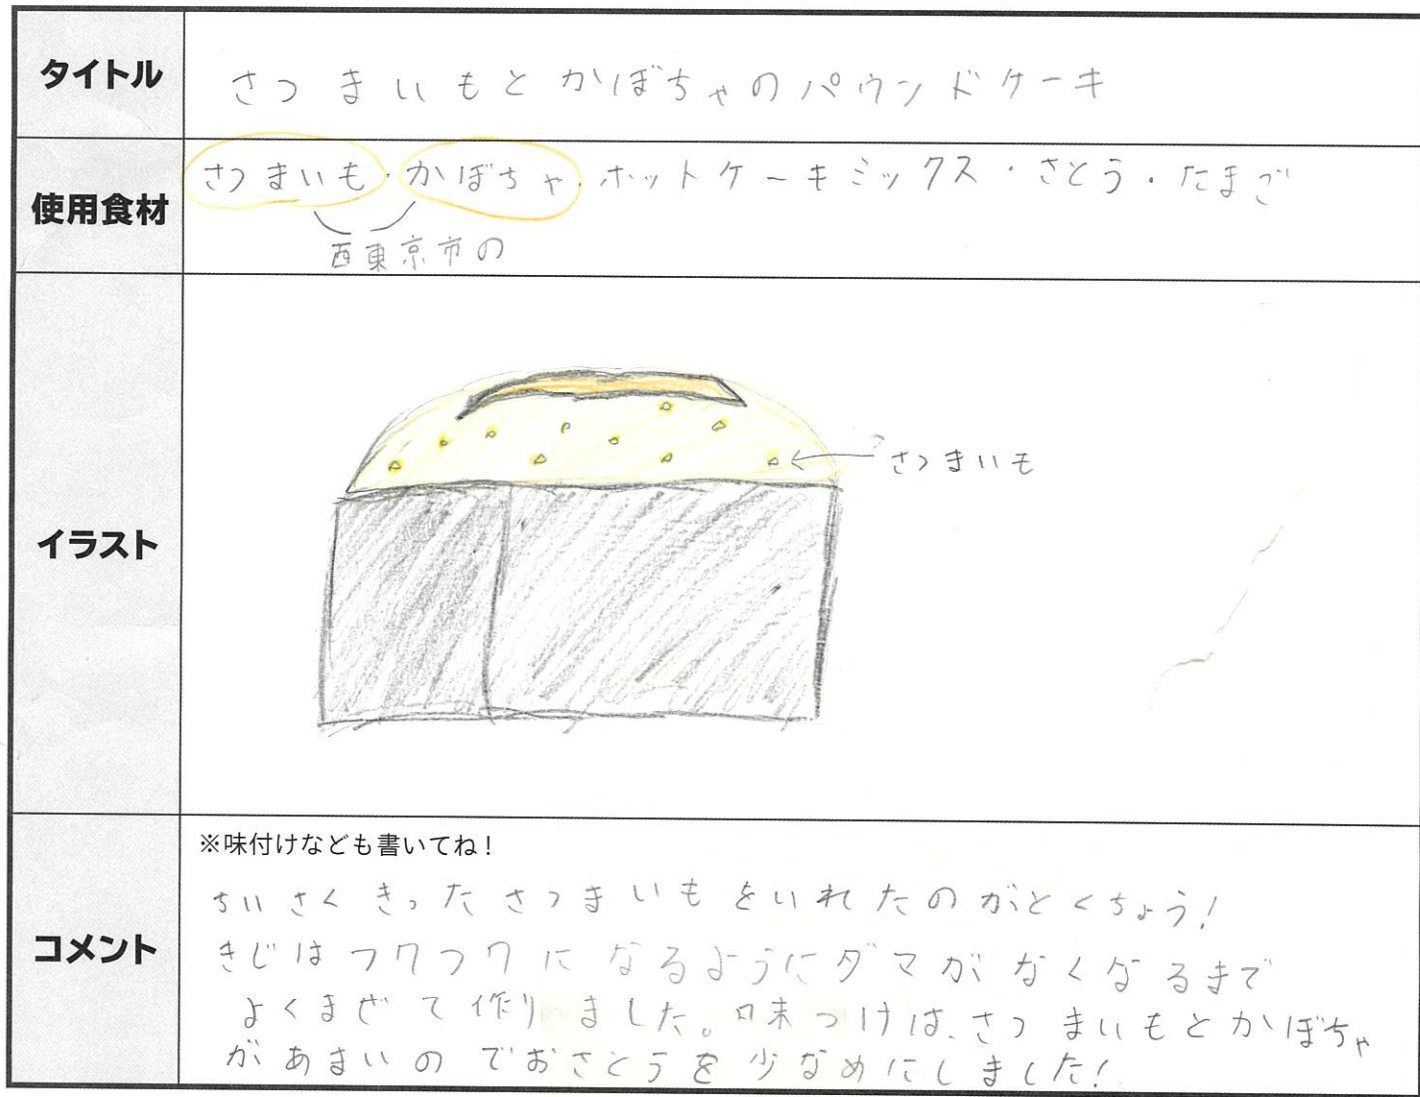 タイトル
さつまいもとかぼちゃのパウンドケーキ
使用食材
さつまいも・かぼちゃ・ホットケーキミックス・さとう・たまご
西東京市の
イラスト
さつまいも
コメント
※味付けなども書いてね！
ちいさくきったさつまいもをいれたのがとくちょう！
きじはフワフワになるようにダマがなくなるまで
よくまぜて作りました。味つけは、さつまいもとかぼちゃ
があまいのでおさとうを少なめにしました！